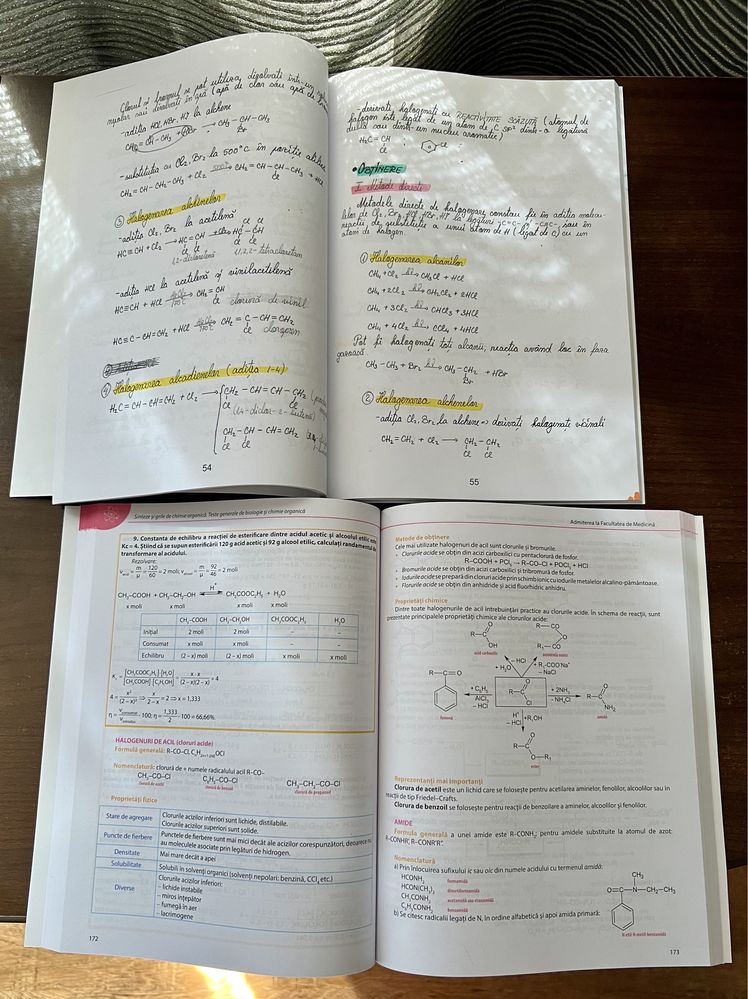 Clorul și bromul se pot utiliza, dizolvați într-un
nepolar sau dizolvați în apă (apă de clor sau apă de
-adiția HCl, HBr, HI la alchene
CH₂=CH-CH₃ + HBr → CH₃-CH-CH₃
Br
-substituția cu Cl₂, Br₂ la 500°C în poziție alilică
CH₂=CH-CH₂-CH₃ + Cl₂ 500°C→ CH₂=CH-CH-CH₃ + HCl
Cl
③ Halogenarea alchinelor
-adiția Cl₂, Br₂ la acetilenă
Cl Cl
HC≡CH + Cl₂ → HC=CH +Cl₂→ HC-CH
Cl Cl Cl Cl
1,2-dicloretenă 1,1,2,2-tetracloretan
-adiția HCl la acetilenă și vinilacetilenă
HC≡CH + HCl HgCl₂→ 170°C CH₂=CH
Cl clorură de vinil
HC≡C-CH=CH₂ + HCl HgCl₂→ 170°C CH₂=C-CH=CH₂
Cl cloropren
④ Halogenarea alcadienelor (adiția 1-4)
H₂C=CH-CH=CH₂ + Cl₂ → CH₂-CH=CH-CH₂
Cl Cl
(1,4-diclor-2-butenă)
CH₂-CH-CH=CH₂
Cl Cl
54
-derivați halogenați cu REACTIVITATE SCĂZUTĂ (atomul de
halogen este legat de un atom de C sp² dintr-o legătură
dublă sau dintr-un nucleu aromatic)
H₂C=CH
Cl Cl
•OBȚINERE
I Metode directe
Metodele directe de halogenare constau fie în adiția molecu-
lelor de Cl₂, Br₂, HCl, HBr, HI la legături -C=C- și -C≡C- sau în
reacții de substituție a unui atom de H (legat de C) cu un
atom de halogen.
① Halogenarea alcanilor
CH₄ + Cl₂ hν→ CH₃Cl + HCl
CH₄ + 2Cl₂ hν→ CH₂Cl₂ + 2HCl
CH₄ + 3Cl₂ hν→ CHCl₃ + 3HCl
CH₄ + 4Cl₂ hν→ CCl₄ + 4HCl
Pot fi halogenați toți alcanii, reacția având loc în faza
gazoasă
CH₃-CH₃ + Br₂ hν→ CH₃-CH₂ + HBr
Br
② Halogenarea alchenelor
-adiția Cl₂, Br₂ la alchene => derivați halogenați vicinali
CH₂=CH₂ + Cl₂ → CH₂-CH₂
Cl Cl
55
Sinteze și grile de chimie organică. Teste generale de biologie și chimie organică
9. Constanta de echilibru a reacției de esterificare dintre acidul acetic și alcoolul etilic este
Kc = 4. Știind că se supun esterificării 120 g acid acetic și 92 g alcool etilic, calculați randamentul de
transformare al acidului.
Rezolvare:
ν acid = m/μ = 120/60 = 2 moli; ν alcool = m/μ = 92/46 = 2 moli
CH₃-COOH + CH₃-CH₂-OH H⁺ ⇌ CH₃COOC₂H₅ + H₂O
x moli x moli x moli x moli
CH₃-COOH CH₃-CH₂OH CH₃COOC₂H₅ H₂O
Inițial 2 moli 2 moli – –
Consumat x moli x moli – –
Echilibru (2 – x) moli (2 – x) moli x moli x moli
Kc = [CH₃COOC₂H₅]·[H₂O] / [CH₃COOH]·[C₂H₅OH] = x · x / (2-x)(2-x) = 4
4 = x²/(2-x)² ⇒ x/(2-x) = 2 ⇒ x = 1,333
η = ν consumat/ν introdus · 100; η = 1,333/2 · 100 = 66,66%
HALOGENURI DE ACIL (cloruri acide)
Formulă generală: R-CO-Cl,
Nomenclatură: clorură de + numele radicalului acil R-CO-
CH₃-CO-Cl C₆H₅-CO-Cl CH₃-CH₂-CO-Cl
clorură de acetil clorură de benzoil clorură de propanoil
Proprietăți fizice
Stare de agregare Clorurile acizilor inferiori sunt lichide, distilabile.
Clorurile acizilor superiori sunt solide.
Puncte de fierbere Punctele de fierbere sunt mai mici decât ale acizilor corespunzători, deoarece nu
au moleculele asociate prin legături de hidrogen.
Densitate Mai mare decât a apei
Solubilitate Solubili în solvenți organici (solvenți nepolari: benzină, CCl₄ etc.)
Diverse Clorurile acizilor inferiori:
– lichide instabile
– miros înțepător
– fumegă în aer
– lacrimogene
172
Admiterea la Facultatea de Medicină
Metode de obținere
Cele mai utilizate halogenuri de acil sunt clorurile și bromurile.
• Clorurile acide se obțin din acizi carboxilici cu pentaclorură de fosfor.
R-COOH + PCl₅ → R-CO-Cl + POCl₃ + HCl
• Bromurile acide se obțin din acizi carboxilici și tribromură de fosfor.
• Iodurile acide se prepară din cloruri acide prin schimb ionic cu iodurile metalelor alcalino-pământoase.
• Florurile acide se obțin din anhidride și acid fluorhidric anhidru.
Proprietăți chimice
Dintre toate halogenurile de acil întrebuințări practice au clorurile acide. În schema de reacții, sunt
prezentate principalele proprietăți chimice ale clorurilor acide:
R-C O OH
acid carboxilic
R-CO O R₁-CO
anhidridă mixtă
- HCl + H₂O
+ R₁-COO⁻Na⁺ - NaCl
R-C=O
fenonă
+ C₆H₆ AlCl₃ - HCl
R-C O Cl
+ 2NH₃ - NH₄Cl
R-C O NH₂
amidă
H⁺ - HCl +R₁OH
R-C O O-R₁
ester
Reprezentanți mai importanți
Clorura de acetil este un lichid care se folosește pentru acetilarea aminelor, fenolilor, alcoolilor sau în
reacții de tip Friedel-Crafts.
Clorura de benzoil se folosește pentru reacții de benzoilare a aminelor, alcoolilor și fenolilor.
AMIDE
Formula generală a unei amide este R-CONH₂; pentru amidele substituite la atomul de azot:
R-CONHR', R-CONR'R".
Nomenclatură
a) Prin înlocuirea sufixului ic sau oic din numele acidului cu termenul amidă:
HCONH₂ formamidă
HCON(CH₃)₂ dimetilformamidă
CH₃CONH₂ acetamidă sau etanamidă
C₆H₅CONH₂ benzamidă
b) Se citesc radicalii legați de N, în ordine alfabetică și apoi amida primară:
CH₃
O=C-N-CH₂-CH₃
N-etil-N-metil-benzamidă
173